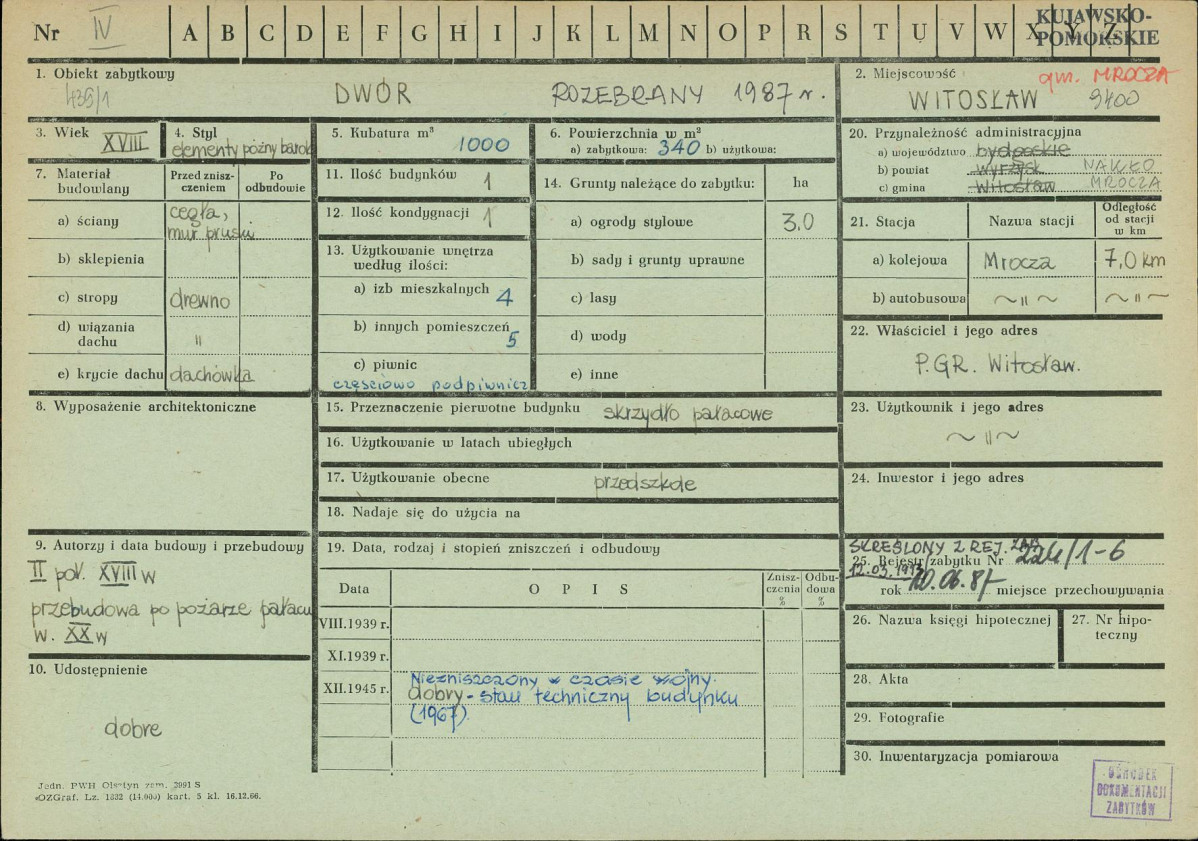 Nr IV A B C D E F G H I J K L M N O P R S T U V W X Y Z KUJAWSKO-
POMORSKIE
1. Obiekt zabytkowy
439/1 DWÓR ROZEBRANY 1987 r.
2. Miejscowość gm. MROCZA
WITOSŁAW 9400
3. Wiek XVIII
4. Styl
elementy późny barok
5. Kubatura m³
1000
6. Powierzchnia w m²
a) zabytkowa: 340 b) użytkowa:
7. Materiał
budowlany
Przed znisz-
czeniem
Po
odbudowie
a) ściany cegła,
mur pruski
b) sklepienia
c) stropy drewno
d) wiązania
dachu "
e) krycie dachu dachówka
8. Wyposażenie architektoniczne
9. Autorzy i data budowy i przebudowy
II poł. XVIII w
przebudowa po pożarze pałacu
w. XX w
10. Udostępnienie
dobre
11. Ilość budynków 1
12. Ilość kondygnacji 1
13. Użytkowanie wnętrza
według ilości:
a) izb mieszkalnych 4
b) innych pomieszczeń 5
c) piwnic
częściowo podpiwnicz
14. Grunty należące do zabytku: ha
a) ogrody stylowe 3.0
b) sady i grunty uprawne
c) lasy
d) wody
e) inne
15. Przeznaczenie pierwotne budynku skrzydło pałacowe
16. Użytkowanie w latach ubiegłych
17. Użytkowanie obecne przedszkole
18. Nadaje się do użycia na
19. Data, rodzaj i stopień zniszczeń i odbudowy
Data O P I S Znisz-
czenia
% Odbu-
dowa
%
VIII.1939 r.
XI.1939 r.
XII.1945 r. Niezniszczony w czasie wojny.
dobry - stan techniczny budynku
(1967)
20. Przynależność administracyjna
a) województwo bydgoskie
b) powiat Wyrzysk NAKŁO
c) gmina Witosław MROCZA
21. Stacja Nazwa stacji Odległość
od stacji
w km
a) kolejowa Mrocza 7,0 km
b) autobusowa ~ " ~ ~ " ~
22. Właściciel i jego adres
P.GR. Witosław.
23. Użytkownik i jego adres
~ " ~
24. Inwestor i jego adres
SKREŚLONY Z REJ. ZAB
25. Rejestr zabytku Nr 224/1-6
12.03.
rok 20.06.87 miejsce przechowywania
26. Nazwa księgi hipotecznej
27. Nr hipo-
teczny
28. Akta
29. Fotografie
30. Inwentaryzacja pomiarowa
OŚRODEK
DOKUMENTACJI
ZABYTKÓW
Jedn. PWH Olsztyn zam. 2991 S
OZGraf. Lz. 1332 (14.000) kart. 5 kl. 16.12.66.